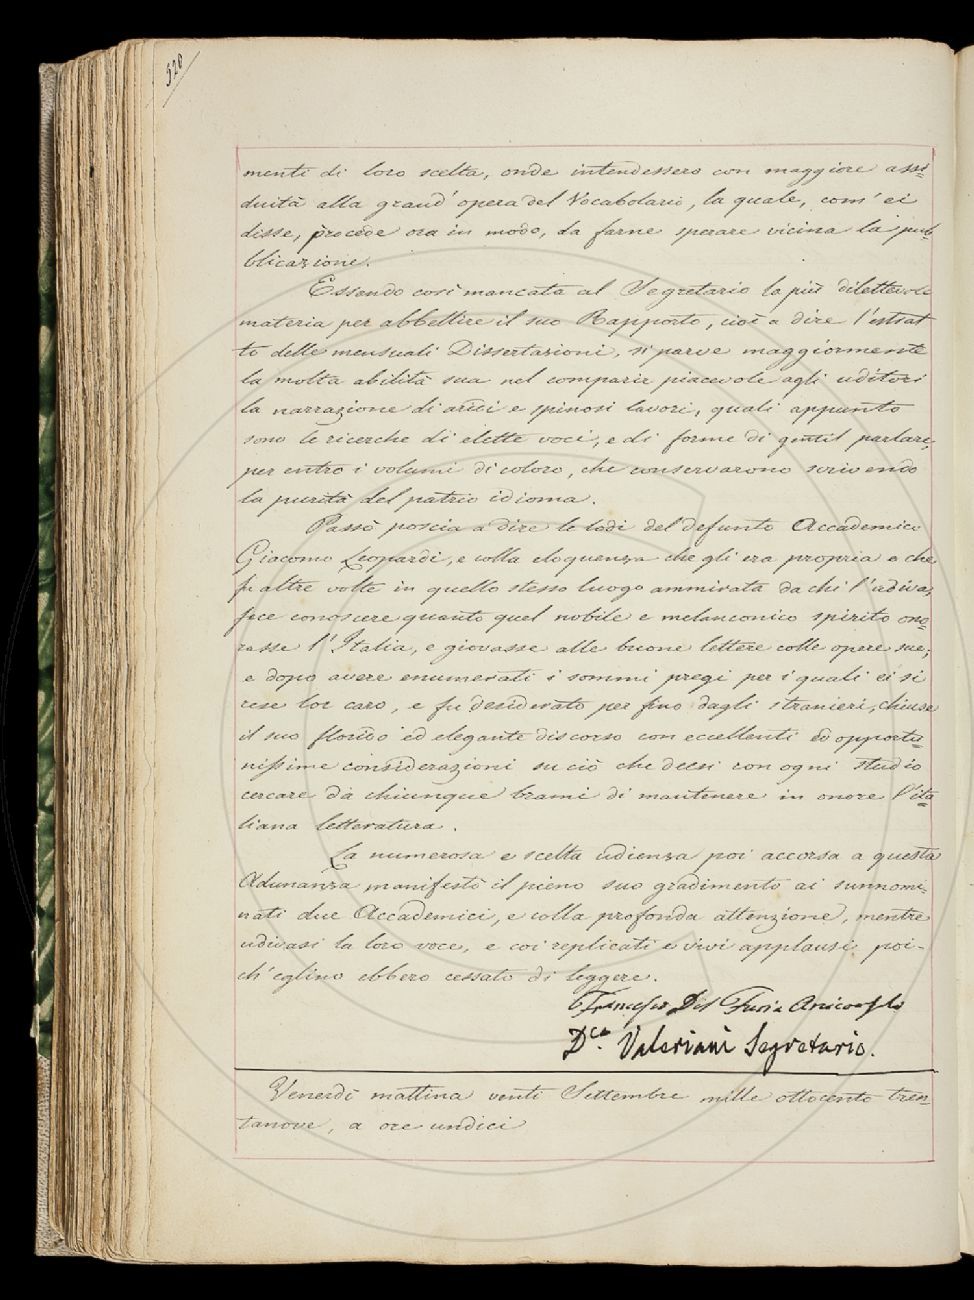 520
menti di loro scelta, onde intendessero con maggiore assi=
duità alla grand' opera del Vocabolario, la quale, com' ei
disse, procede ora in modo, da farne sperare vicina la pub=
blicazione.
Essendo così mancata al Segretario la più dilettevole
materia per abbellire il suo Rapporto, cioè a dire l'estrat
to delle mensuali Dissertazioni, si parve maggiormente
la molta abilità sua nel comparir piacevole agli uditori
la narrazione di aridi e spinosi lavori, quali appunto
sono le ricerche di elette voci, e di forme di gentil parlare,
per entro i volumi di coloro, che conservarono scrivendo
la purità del patrio idioma.
Passò poscia a dire le lodi del defunto Accademico
Giacomo Leopardi, e colla eloquenza che gli era propria e che
fu altre volte in quello stesso luogo ammirata da chi l'udiva,
fece conoscere quanto quel nobile e melanconico spirito ono=
rasse l'Italia, e giovasse alle buone lettere colle opere sue;
e dopo avere enumerati i sommi pregi per i quali ei si
rese lor caro, e fu desiderato per fino dagli stranieri, chiuse
il suo florido ed elegante discorso con eccellenti ed opportu=
nissime considerazioni su ciò che deesi con ogni studio
cercare da chiunque brami di mantenere in onore l'ita=
liana letteratura.
La numerosa e scelta udienza poi accorsa a questa
Adunanza manifestò il pieno suo gradimento ai sunnomi=
nati due Accademici, e colla profonda attenzione, mentre
udivasi la loro voce, e coi replicati e vivi applausi poi-
ch'eglino ebbero cessato di leggere.
Francesco Del Furia Arciconsolo
D.co Valeriani Segretario.
Venerdì mattina venti Settembre mille ottocento tren=
tanove, a ore undici